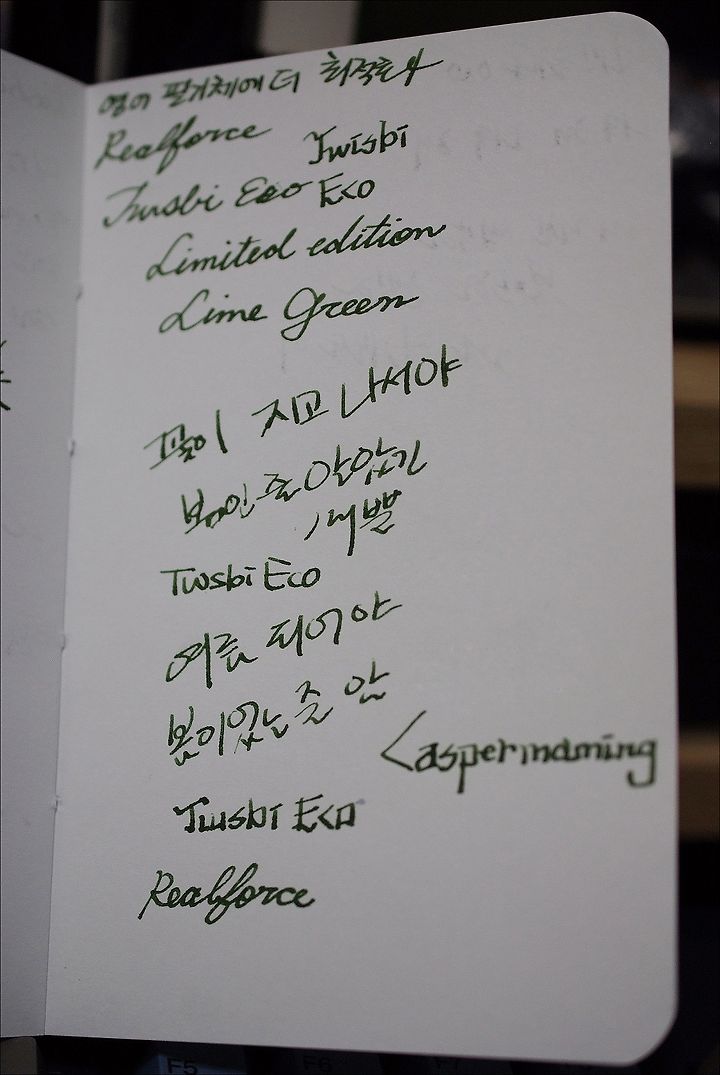 영어 필기체에 더 최적화
Realforce Twisbi
Twsbi Eco Eco
Limited edition
Lime Green
꽃이 지고 나서야
봄인 줄 알았기
Twsbi Eco
여름 되어야
봄이었는 줄 앎
Twsbi Eco
Realforce
F5
F6